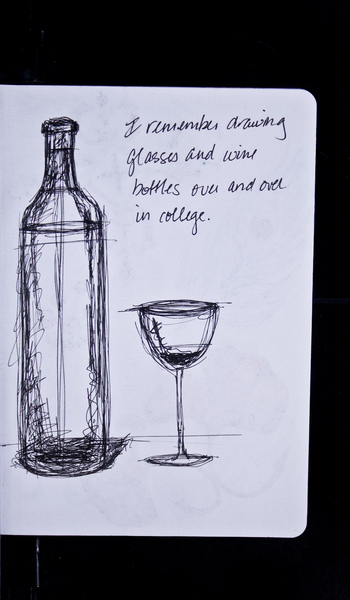 I remember drawing
glasses and wine
bottles over and over
in college.